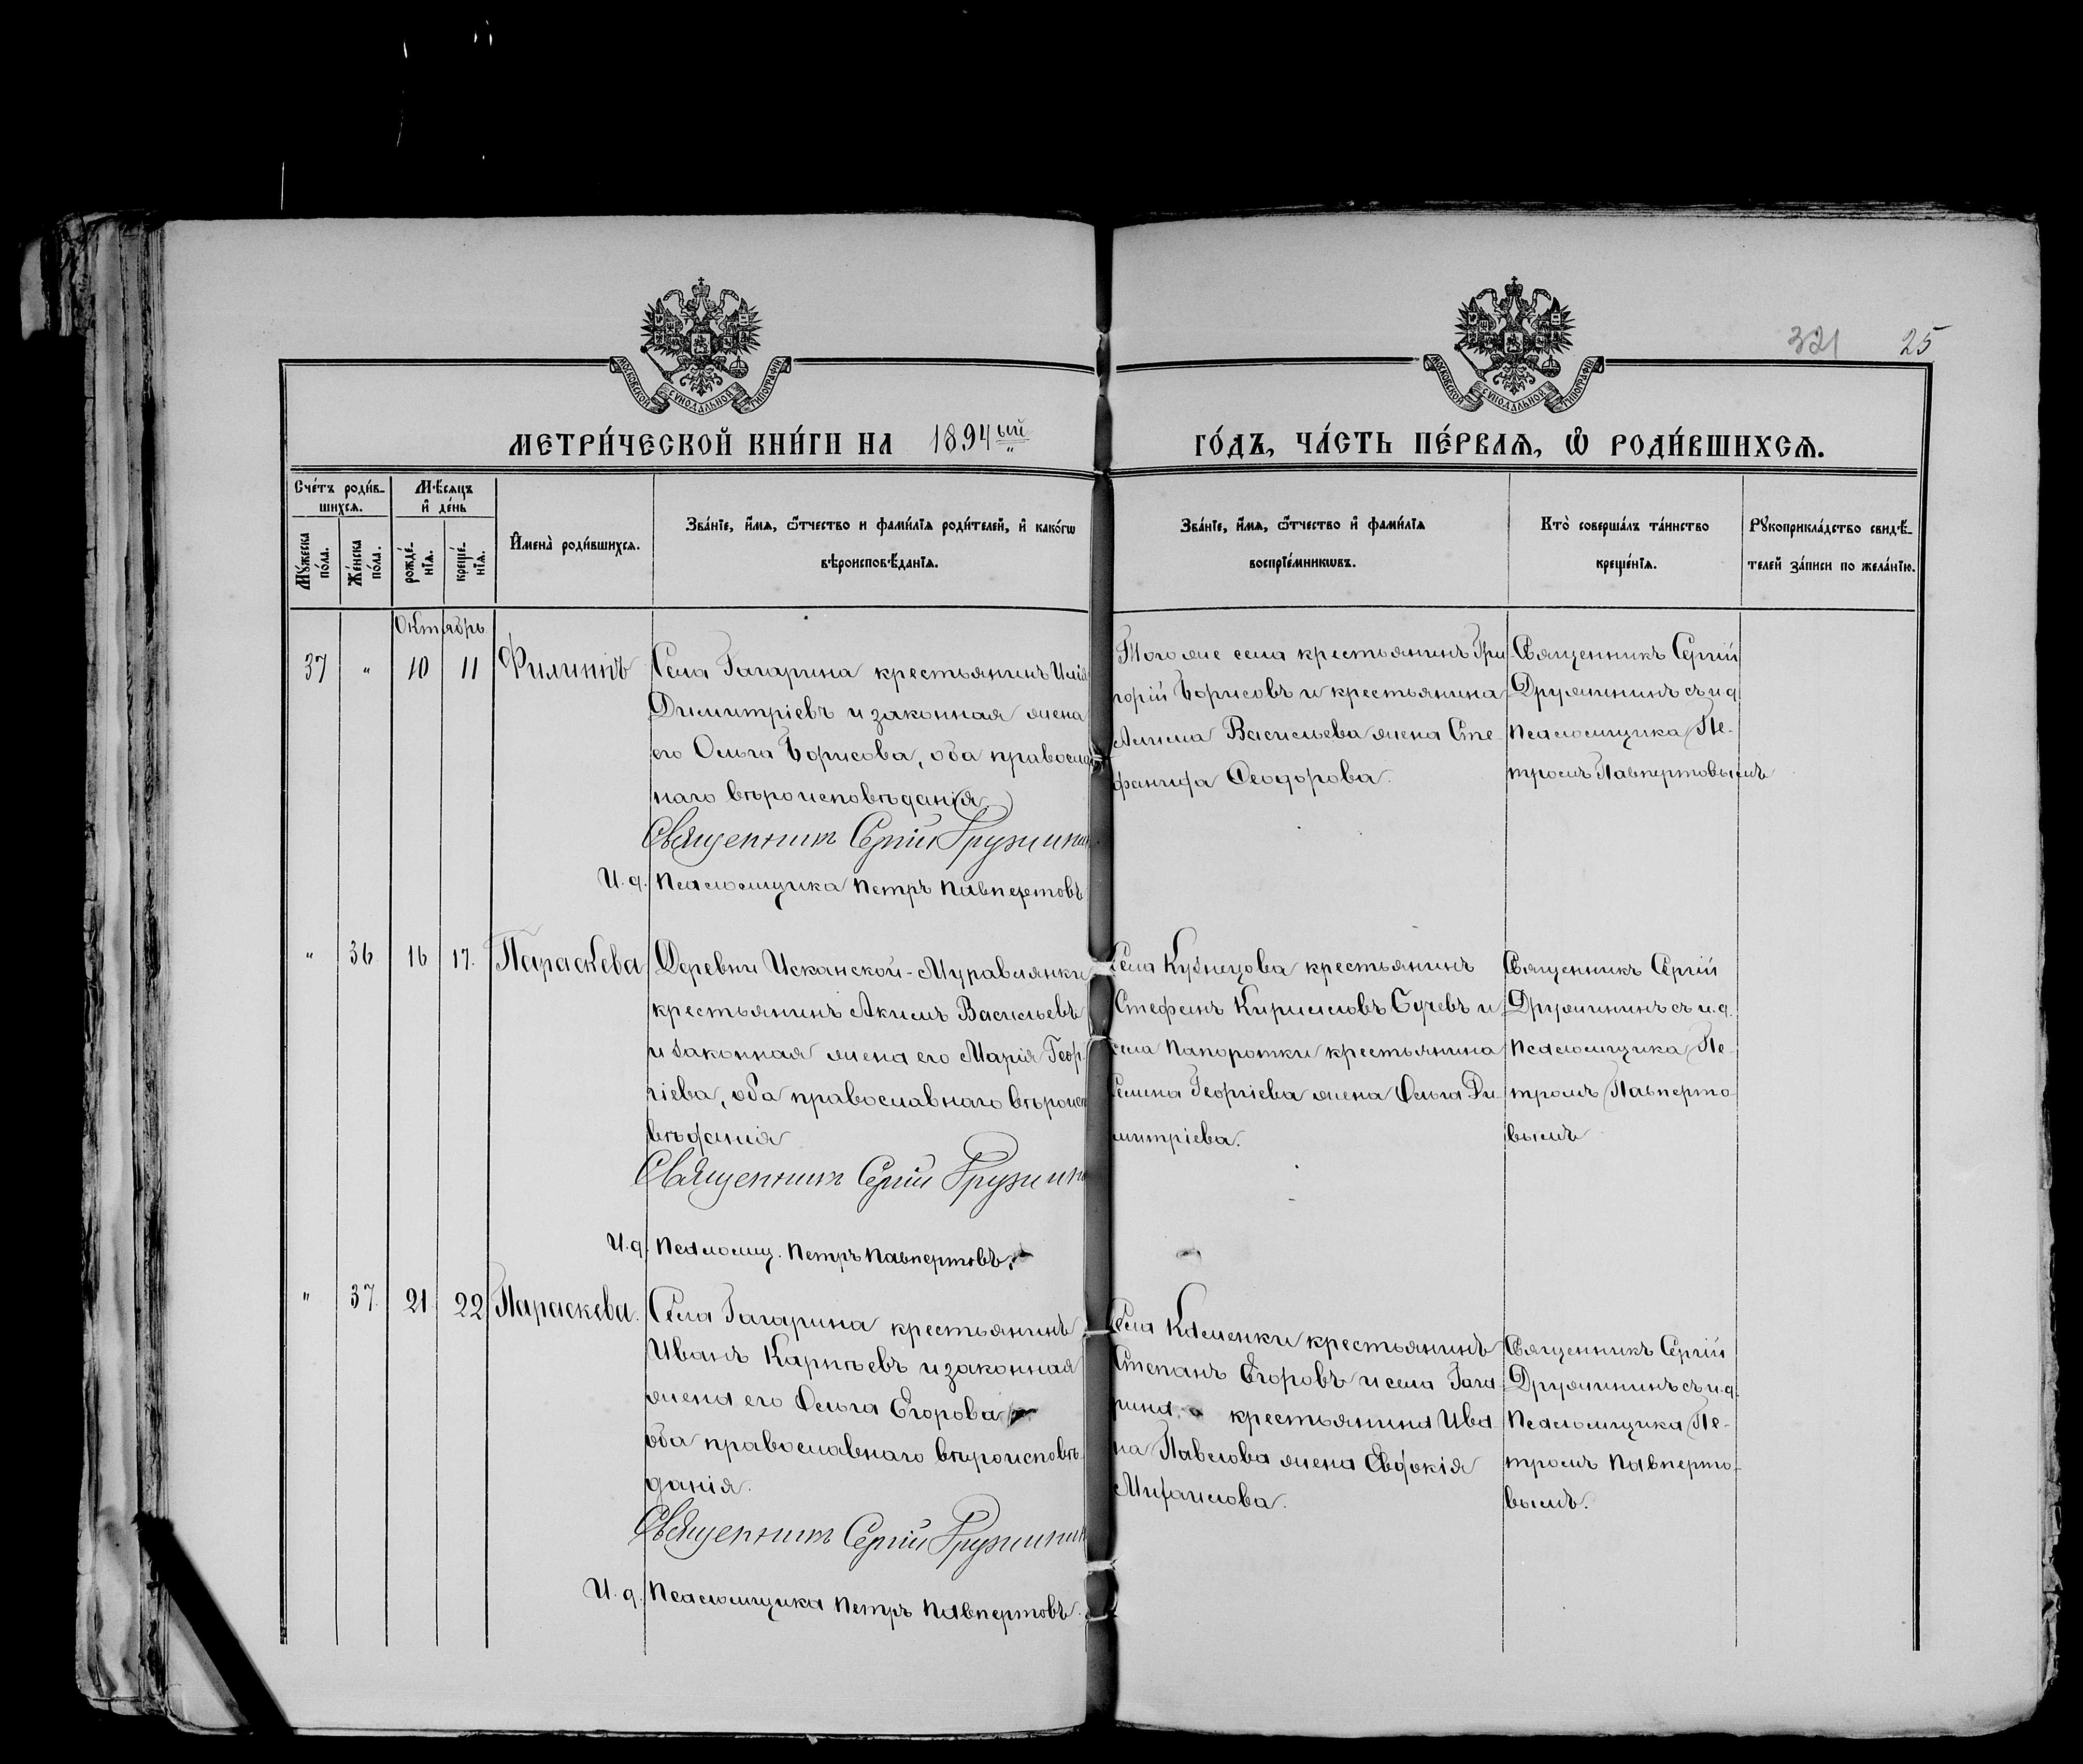 321 25
МОСКОВСКОЙ СѴНОДАЛЬНОЙ ТИПОГРАФІИ
МОСКОВСКОЙ СѴНОДАЛЬНОЙ ТИПОГРАФІИ
МЕТРИ́ЧЕСКОЙ КНИ́ГИ НА 1894ый
ГО́ДЪ, ЧА́СТЬ ПЕ́РВАѦ, Ѡ РОДИ́ВШИХСѦ.
Сче́тъ роди́в-
шихсѧ.
Мѣ́сѧцъ
и҆ де́нь
Мꙋ́жеска по́ла.
Же́нска по́ла.
рожде́-нїѧ.
креще́-нїѧ.
И҆мена̀ роди́вшихсѧ.
Зва́нїе, и҆́мѧ, ѻ҆́тчество и фами́лїѧ роди́телей, и҆ како́гѡ
вѣроисповѣ́данїѧ.
Зва́нїе, и҆́мѧ, ѻ҆́тчество и҆ фами́лїѧ
воспрїе́мникѡвъ.
Кто̀ соверша́лъ та́инство
креще́нїѧ.
Рꙋкоприкла́дство свидѣ́-
телей за́писи по жела́нїю.
Октябрь
37 " 10 11 Филиппъ
Села Гагарина крестьянинъ Илія
Димитріевъ и законная жена
его Ольга Борисова, оба правосла
наго вѣроисповѣданія
Священникъ Сергій Дружинин
И. д. Псаломщика Петръ Павпертовъ
Того же села крестьянинъ Гри
горій Борисовъ и крестьянина
Васильева жена Сте-
фанида Ѳеодорова.
Священникъ Сергій
Дружининъ съ и. д.
Псаломщика Пе-
тромъ Павпертовымъ
" 36 16 17. Параскева
Деревни Исканской-Муравлянки
крестьянинъ Акимъ Васильевъ
и законная жена его Марія Геор-
гіева, оба православнаго вѣроисп
вѣданія
Священникъ Сергій Дружинин
И. д. Псаломщ. Петръ Павпертовъ.
Села Кузнецова крестьянинъ
Стефанъ Кирилловъ и
села Папоротки крестьянина
Георгіева жена Ольга Ди-
митріева.
Священникъ Сергій
Дружининъ съ и. д.
Псаломщика Пе-
тромъ Павперто-
вымъ
" 37. 21 22 Параскева.
Села Гагарина крестьянинъ
Иванъ Карпѣевъ и законная
жена его Ольга Егорова
оба православнаго вѣроисповѣ-
данія.
Священникъ Сергій Дружинин
И. д. Псаломщика Петръ Павпертовъ.
Села Каменки крестьянинъ
Степанъ Егоровъ и села Гага-
рина крестьянина Ива
на Павлова жена Евдокія
Михаилова.
Священникъ Сергій
Дружининъ съ и. д.
Псаломщика Пе-
тромъ Павперто-
вымъ.